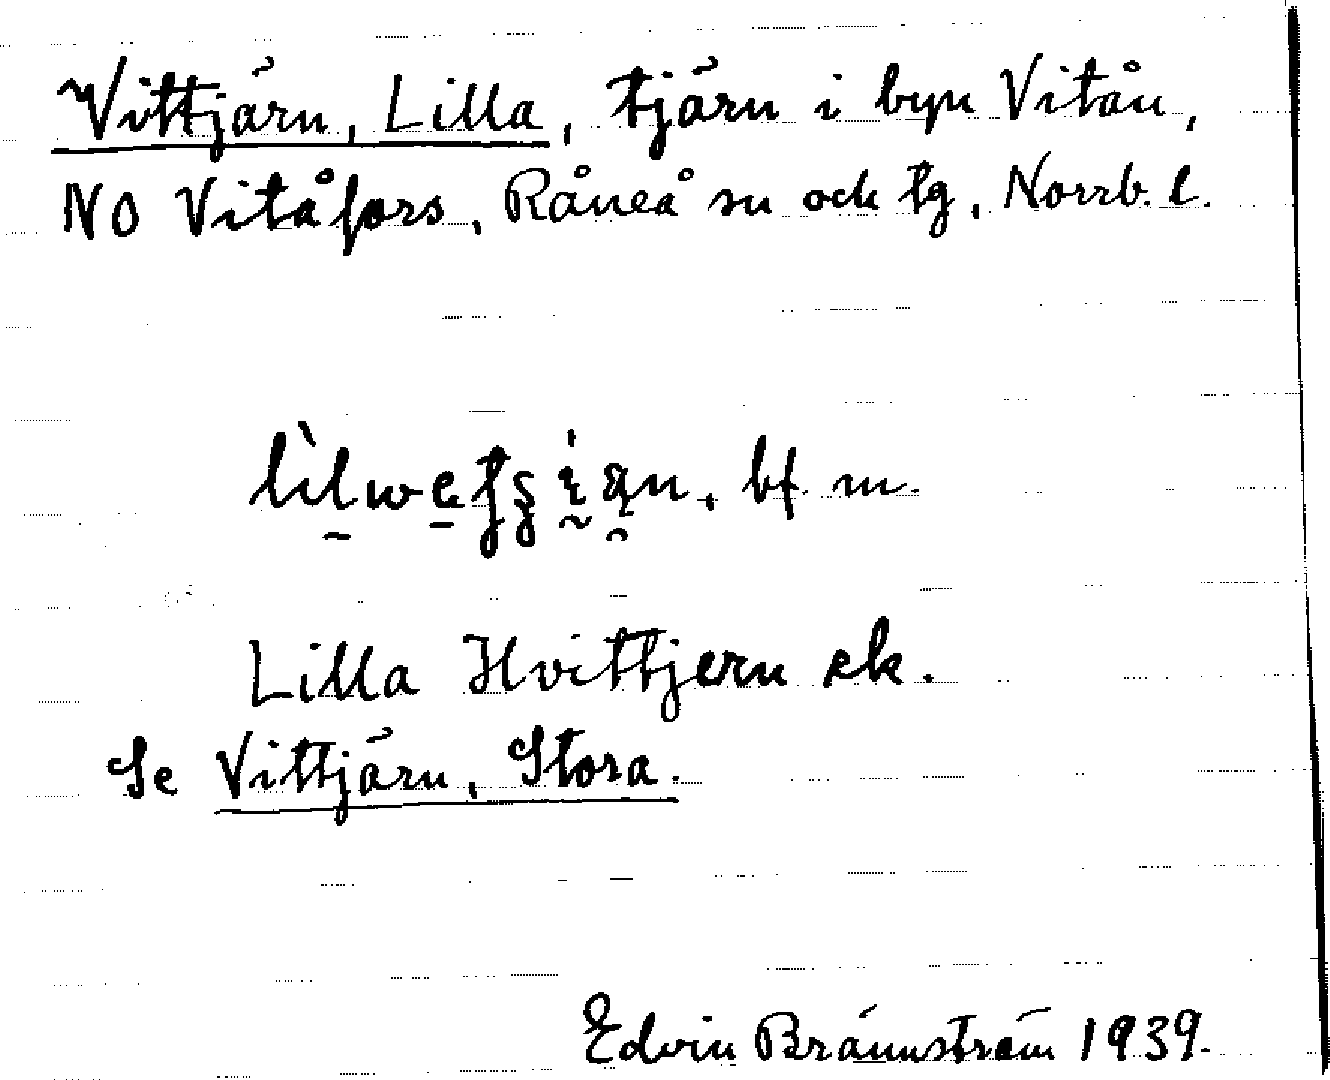 Vittjärn, Lilla, tjärn i byn Vitån,
NO Vitåfors, Råneå sn ock tg, Norrb. l.
bf. m.
Lilla Hvittjern ek.
Se Vittjärn, Stora.
Edvin Brännström 1939.